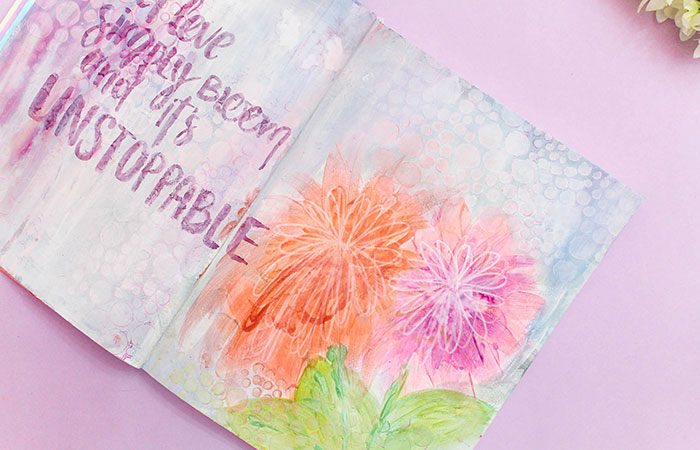 love
simply BLOOM
and it's
UNSTOPPABLE